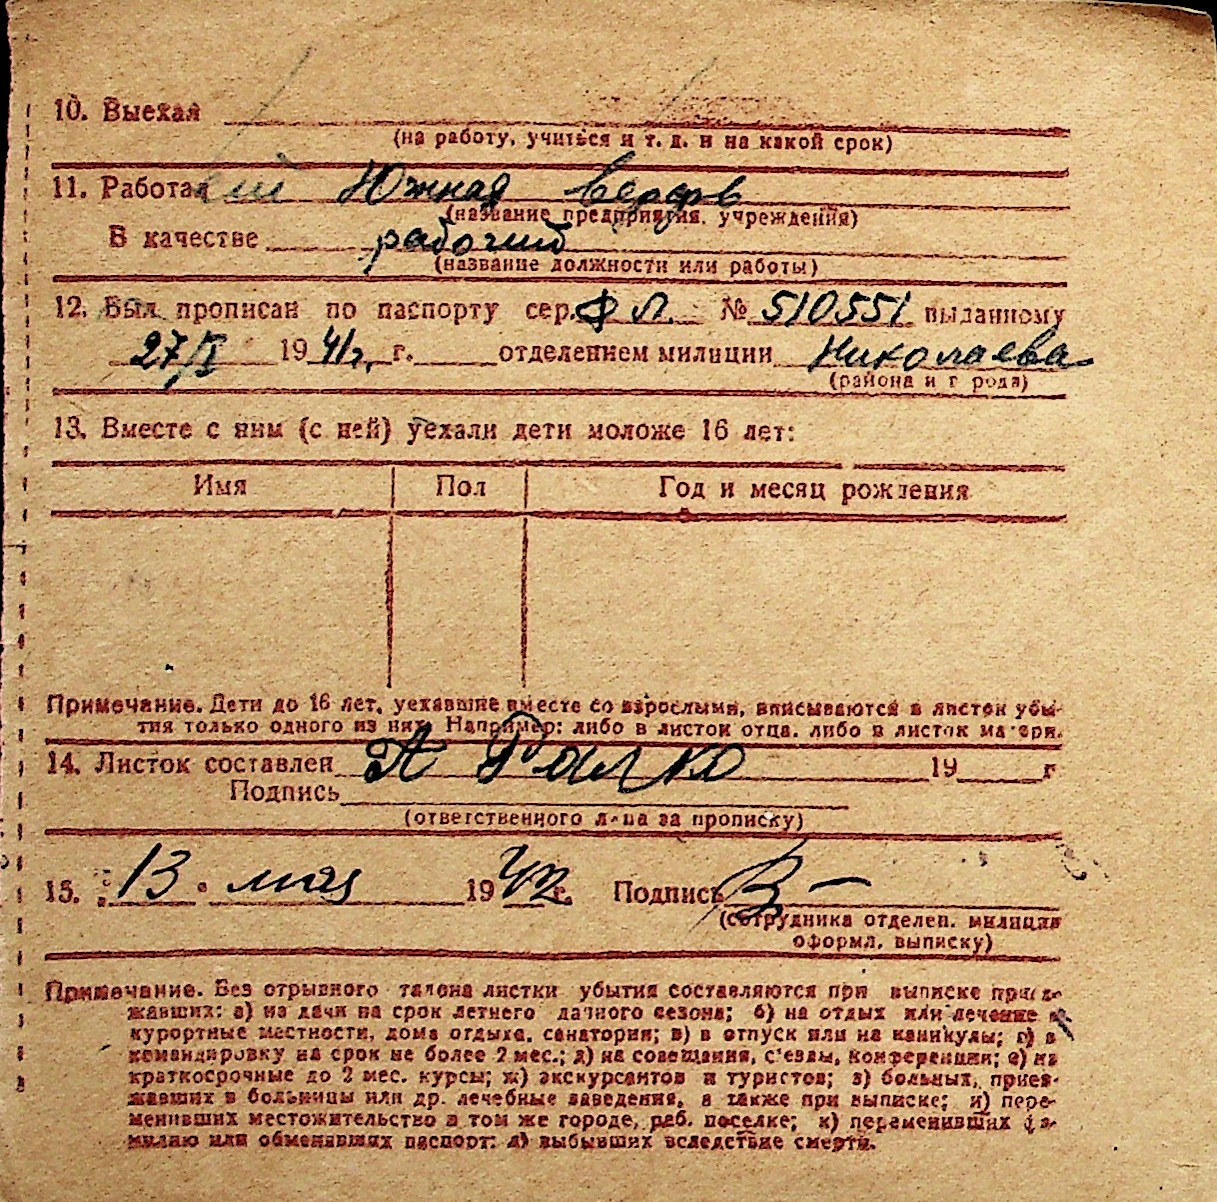 10. Выехал
(на работу, учиться и т. д. и на какой срок)
11. Работал Южная верфь
(название предприятия, учреждения)
В качестве рабочий
(название должности или работы)
12. Был прописан по паспорту сер. ФЛ. № 510551 выданному
27/I 1941г. г. отделением милиции Николаева
(района и города)
13. Вместе с ним (с ней) уехали дети моложе 16 лет:
Имя Пол Год и месяц рождения
Примечание. Дети до 16 лет, уехавшие вместе со взрослыми, вписываются в листок убы-
тия только одного из них. Например: либо в листок отца, либо в листок матери.
14. Листок составлен 19 г
Подпись
(ответственного лица за прописку)
15. „13“ мая 1942 г. Подпись
(сотрудника отделен. милиции
оформл. выписку)
Примечание. Без отрывного талона листки убытия составляются при выписке приез-
жавших: а) на дачи на срок летнего дачного сезона; б) на отдых или лечение в
курортные местности, дома отдыха, санатории; в) в отпуск или на каникулы; г) в
командировку на срок не более 2 мес.; д) на совещания, с'езды, конференции; е) на
краткосрочные до 2 мес. курсы; ж) экскурсантов и туристов; з) больных, приез-
жавших в больницы или др. лечебные заведения, а также при выписке; и) пере-
менивших местожительство в том же городе, раб. поселке; к) переменивших фа-
милию или обменявших паспорт; л) выбывших вследствие смерти.